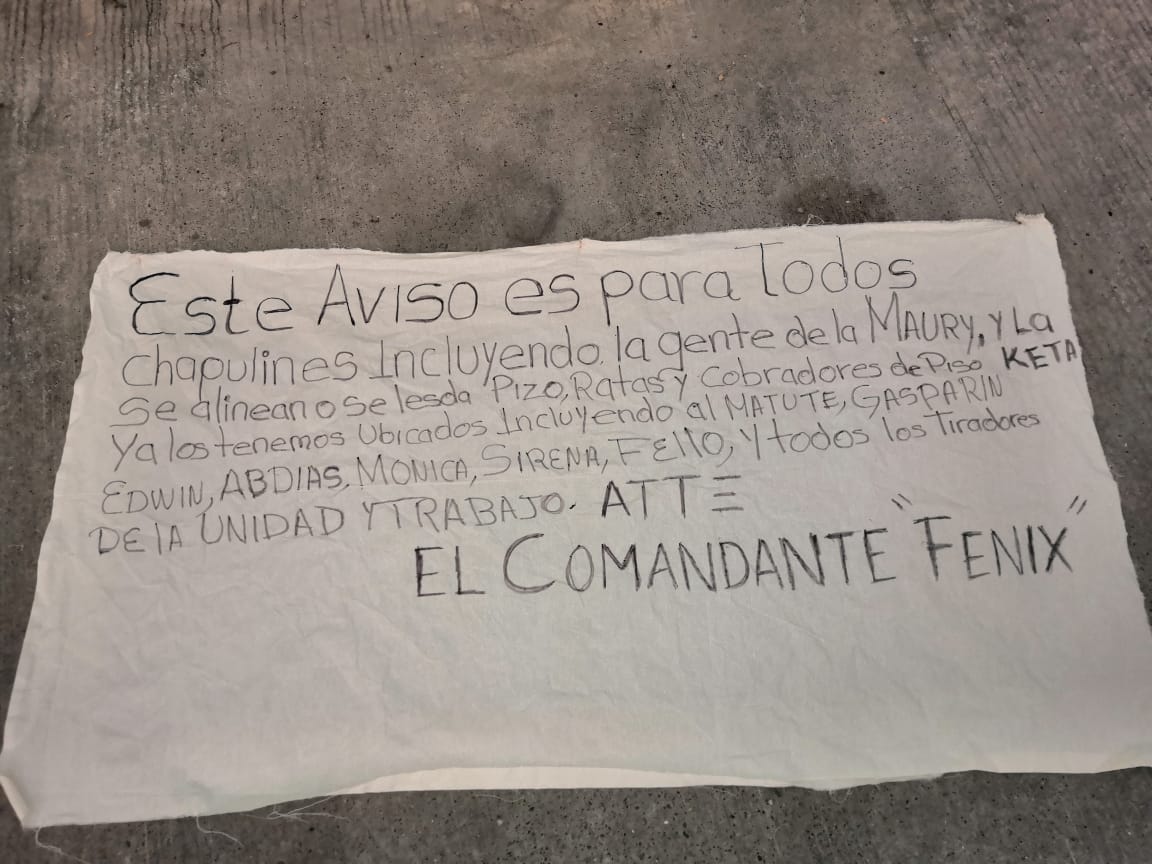 Este Aviso es para Todos
Chapulines Incluyendo la gente de la MAURY, Y La KETA
Se alinean o se les da Pizo, Ratas y Cobradores de Piso
Ya los tenemos Ubicados Incluyendo al MATUTE, GASPARIN
EDWIN, ABDIAS, MONICA, SIRENA, FEllO, Y todos los Tiradores
DE lA UNIDAD Y TRABAJO. ATTE
EL COMANDANTE "FENIX"